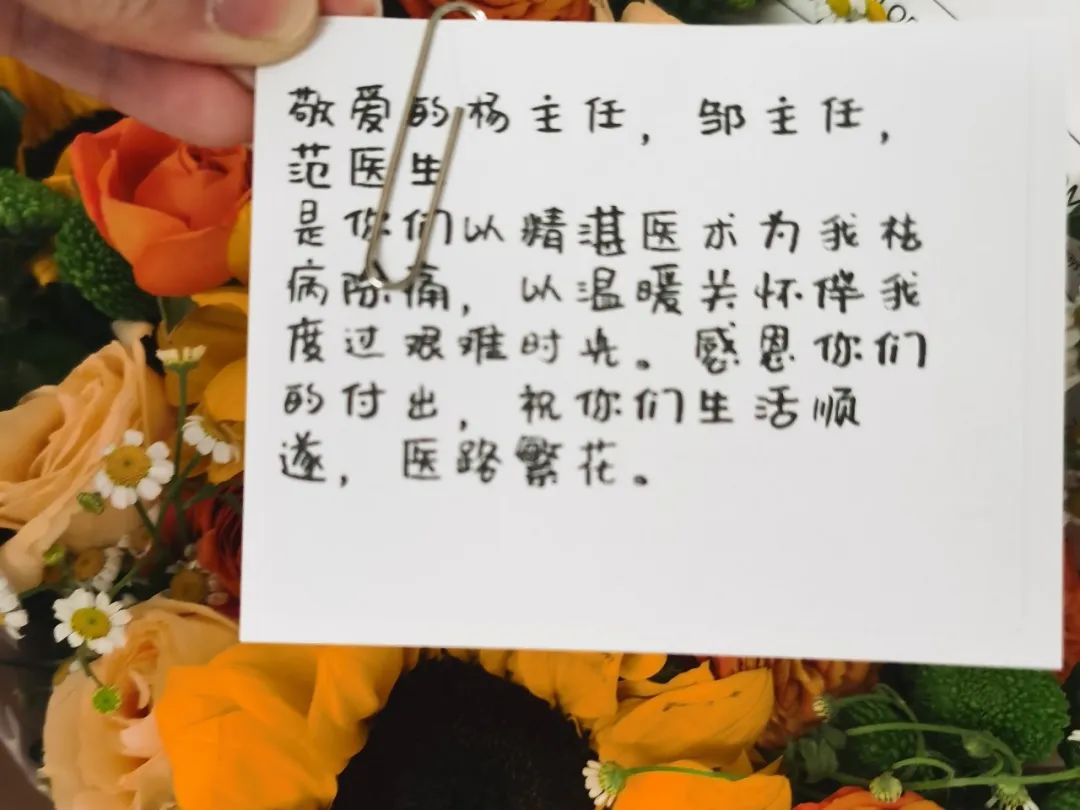 敬爱的杨主任，邹主任，
范医生
是你们以精湛医术为我祛
病除痛，以温暖关怀伴我
度过艰难时光。感恩你们
的付出，祝你们生活顺
遂，医路繁花。